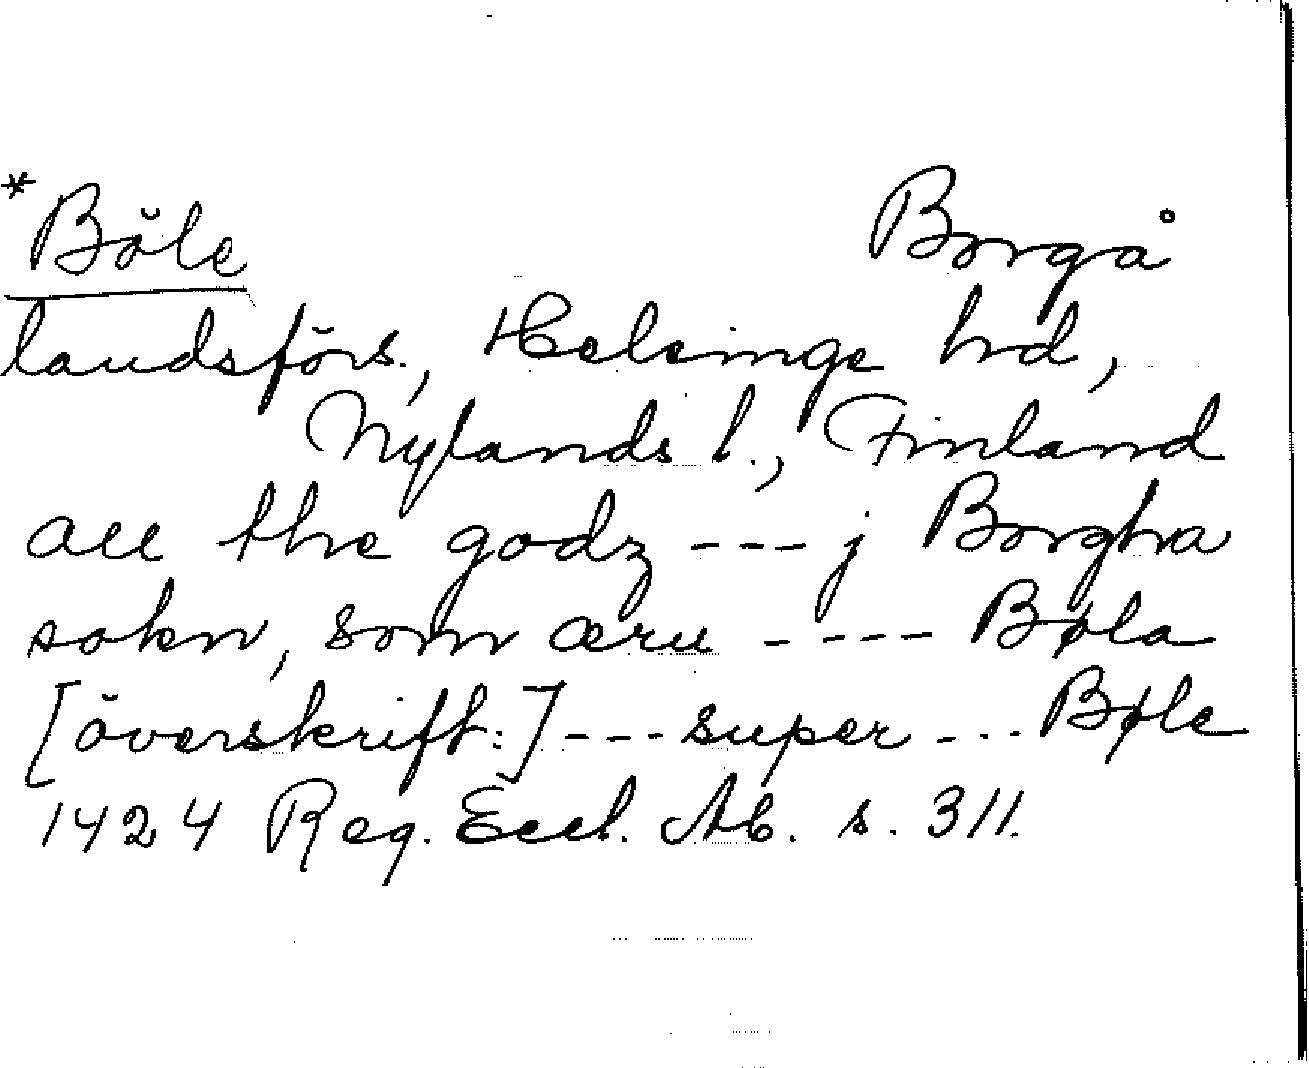 *Böle Borgå
landsförs., Helsinge hd,
Nylands l., Finland
all the godz --- j Borgha
sokn, som æru ---- Bøla
[överskrift:] --- super ... Bøle
1424 Reg. Eccl. Ab. s. 311.